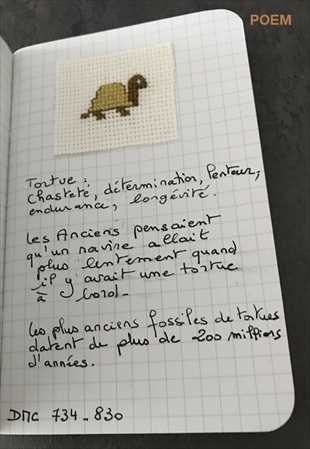 POEM
Tortue :
Chasteté, détermination, lenteur,
endurance, longévité.
Les Anciens pensaient
qu'un navire allait
plus lentement quand
il y avait une tortue
à bord.
Les plus anciens fossiles de tortues
datent de plus de 200 millions
d'années.
DMC 734 - 830